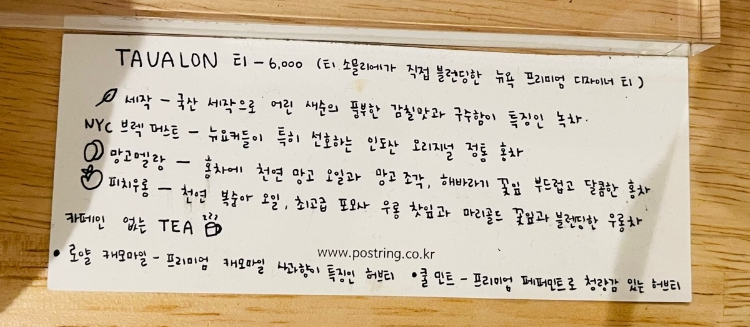 TAVALON 티 - 6,000 (티 소믈리에가 직접 블렌딩한 뉴욕 프리미엄 디자이너 티)
세작 - 국산 세작으로 어린 새순의 풍부한 감칠맛과 구수함이 특징인 녹차.
NYC 브렉퍼스트 - 뉴요커들이 특히 선호하는 인도산 오리지널 정통 홍차
망고멜랑 - 홍차에 천연 망고 오일과 망고 조각, 해바라기 꽃잎 부드럽고 달콤한 홍차
피치우롱 - 천연 복숭아 오일, 최고급 포모사 우롱 찻잎과 마리골드 꽃잎과 블렌딩한 우롱차
카페인 없는 TEA
• 로얄 캐모마일 - 프리미엄 캐모마일 사과향이 특징인 허브티 • 쿨 민트 - 프리미엄 페퍼민트로 청량감 있는 허브티
www.postring.co.kr